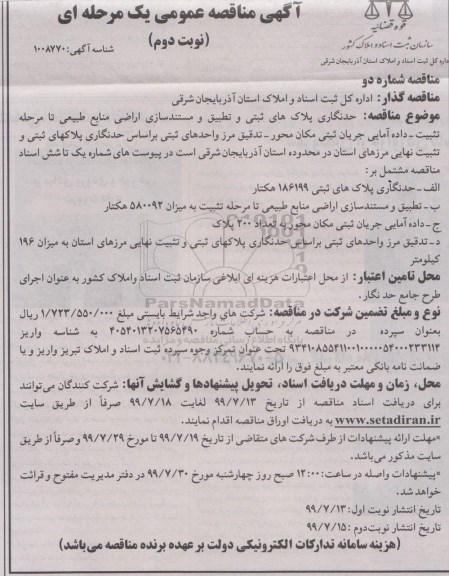 آگهی مناقصه عمومی یک مرحله ای
(نوبت دوم)
شناسه آگهی: ۱۰۰۸۷۷۰
قوه قضائیه
سازمان ثبت اسناد و املاک کشور
اداره کل ثبت اسناد و املاک استان آذربایجان شرقی
مناقصه شماره دو
مناقصه گذار: اداره کل ثبت اسناد و املاک استان آذربایجان شرقی
موضوع مناقصه: حدنگاری پلاک های ثبتی و تطبیق و مستندسازی اراضی منابع طبیعی تا مرحله
تثبیت - داده آمایی جریان ثبتی مکان محور - تدقیق مرز واحدهای ثبتی براساس حدنگاری پلاکهای ثبتی و
تثبیت نهایی مرزهای استان در محدوده استان آذربایجان شرقی است در پیوست های شماره یک تا شش اسناد
مناقصه مشتمل بر:
الف - حدنگاری پلاک های ثبتی ۱۸۶۱۹۹ هکتار
ب - تطبیق و مستندسازی اراضی منابع طبیعی تا مرحله تثبیت به میزان ۵۸۰۰۹۲ هکتار
ج - داده آمایی جریان ثبتی مکان محور به تعداد ۲۰۰ پلاک
د - تدقیق مرز واحدهای ثبتی براساس حدنگاری پلاکهای ثبتی و تثبیت نهایی مرزهای استان به میزان ۱۹۶
کیلومتر
محل تامین اعتبار: از محل اعتبارات هزینه ای ابلاغی سازمان ثبت اسناد واملاک کشور به عنوان اجرای
طرح جامع حد نگار.
نوع و مبلغ تضمین شرکت در مناقصه: شرکت های واجد شرایط بایستی مبلغ ۱/۷۲۳/۵۵۰/۰۰۰ ریال
بعنوان سپرده در مناقصه به حساب شماره ۴۰۵۴۰۱۳۲۰۷۵۶۵۴۹۰ به شناسه واریز
تحت عنوان تمرکز وجوه سپرده ثبت اسناد و املاک تبریز واریز و یا
ضمانت نامه بانکی معتبر به مبلغ فوق را ارائه نمایند.
محل، زمان و مهلت دریافت اسناد، تحویل پیشنهادها و گشایش آنها: شرکت کنندگان می‌توانند
برای دریافت اسناد مناقصه از تاریخ ۹۹/۷/۱۳ لغایت ۹۹/۷/۱۸ صرفاً از طریق سایت
www.setadiran.ir به دریافت اوراق مناقصه اقدام نمایند.
*مهلت ارائه پیشنهادات از طرف شرکت های متقاضی از تاریخ ۹۹/۷/۱۹ تا مورخ ۹۹/۷/۲۹ و صرفاً از طریق
سایت مذکور می‌باشد.
*پیشنهادات واصله در ساعت: ۱۲:۰۰ صبح روز چهارشنبه مورخ ۹۹/۷/۳۰ در دفتر مدیریت مفتوح و قرائت
خواهد شد.
تاریخ انتشار نوبت اول: ۹۹/۷/۱۳
تاریخ انتشار نوبت‌دوم: ۹۹/۷/۱۵
(هزینه سامانه تدارکات الکترونیکی دولت بر عهده برنده مناقصه می‌باشد)
ParsNamadData
پایگاه اطلاع رسانی مناقصه و مزایده